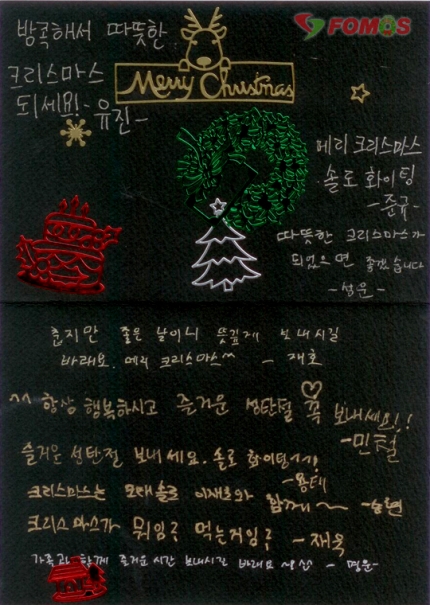 FOMOS
방콕해서 따뜻한
크리스마스
되세요!- 유진-
Merry Christmas
메리 크리스마스
솔로 화이팅
-준규-
따뜻한 크리스마스가
되었으면 좋겠습니다
-성운-
춥지만 좋은 날이니 뜻깊게 보내시길
바래요. 메리 크리스마스^^ - 재호
^^ 항상 행복하시고 즐거운 성탄절 꼭 보내세요!!
-민철
즐거운 성탄절 보내세요. 솔로 화이팅
-용태
크리스마스는 모태솔로 이재호와 함께~
크리스마스가 뭐임? 먹는거임? - 재욱
가족과 함께 즐거운 시간 보내시길 바래요 - 명운-